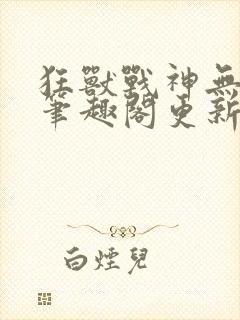 狂獸戰神無
筆趣閣更新
白煙兒